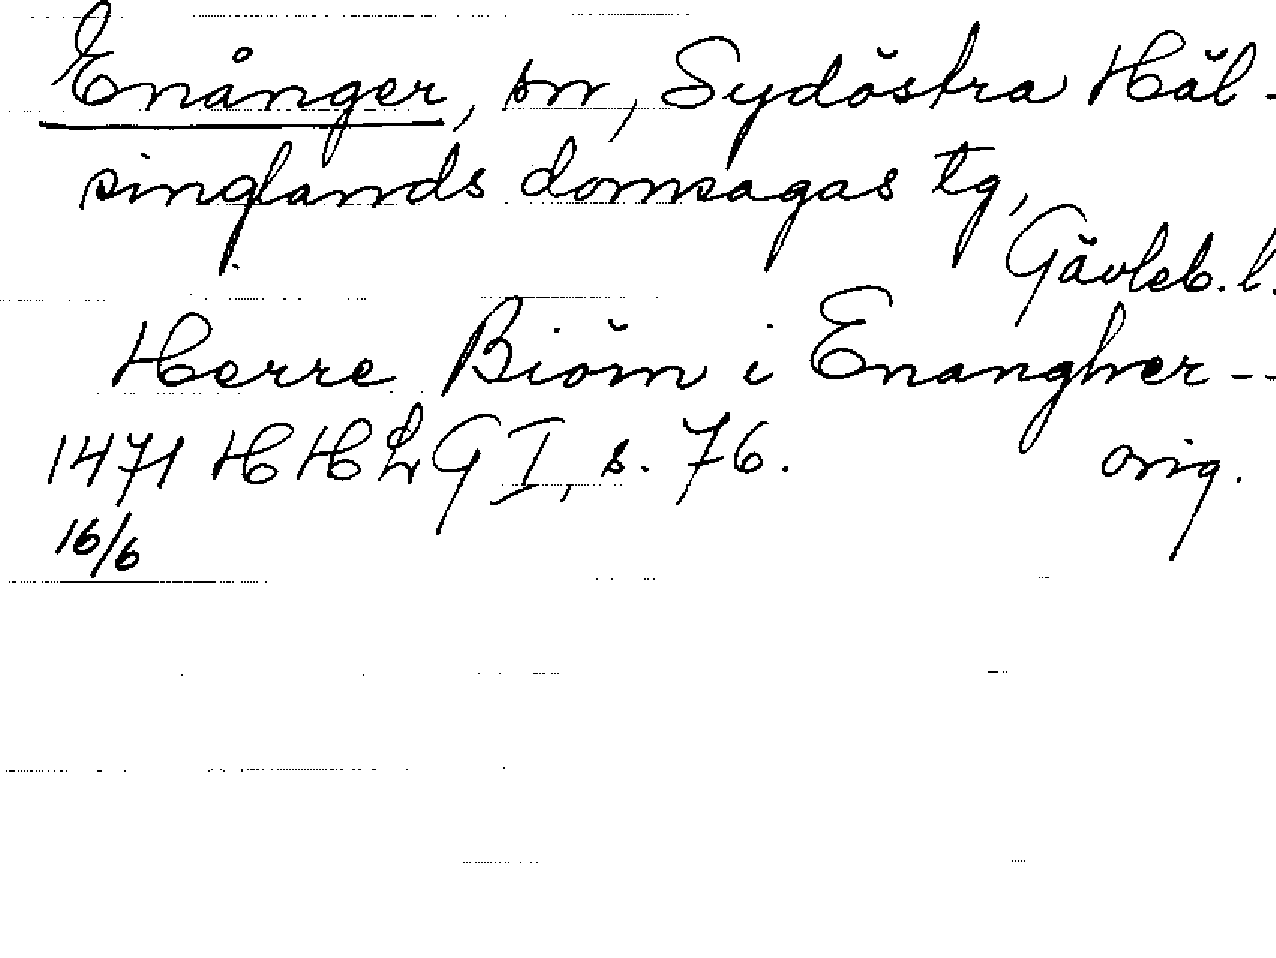 Enånger, sn, Sydöstra Häl-
singlands domsagas tg,
Gävleb. l.
Herre Biörn i Enangher --
1471 HHLG I, s. 76. orig.
16/6